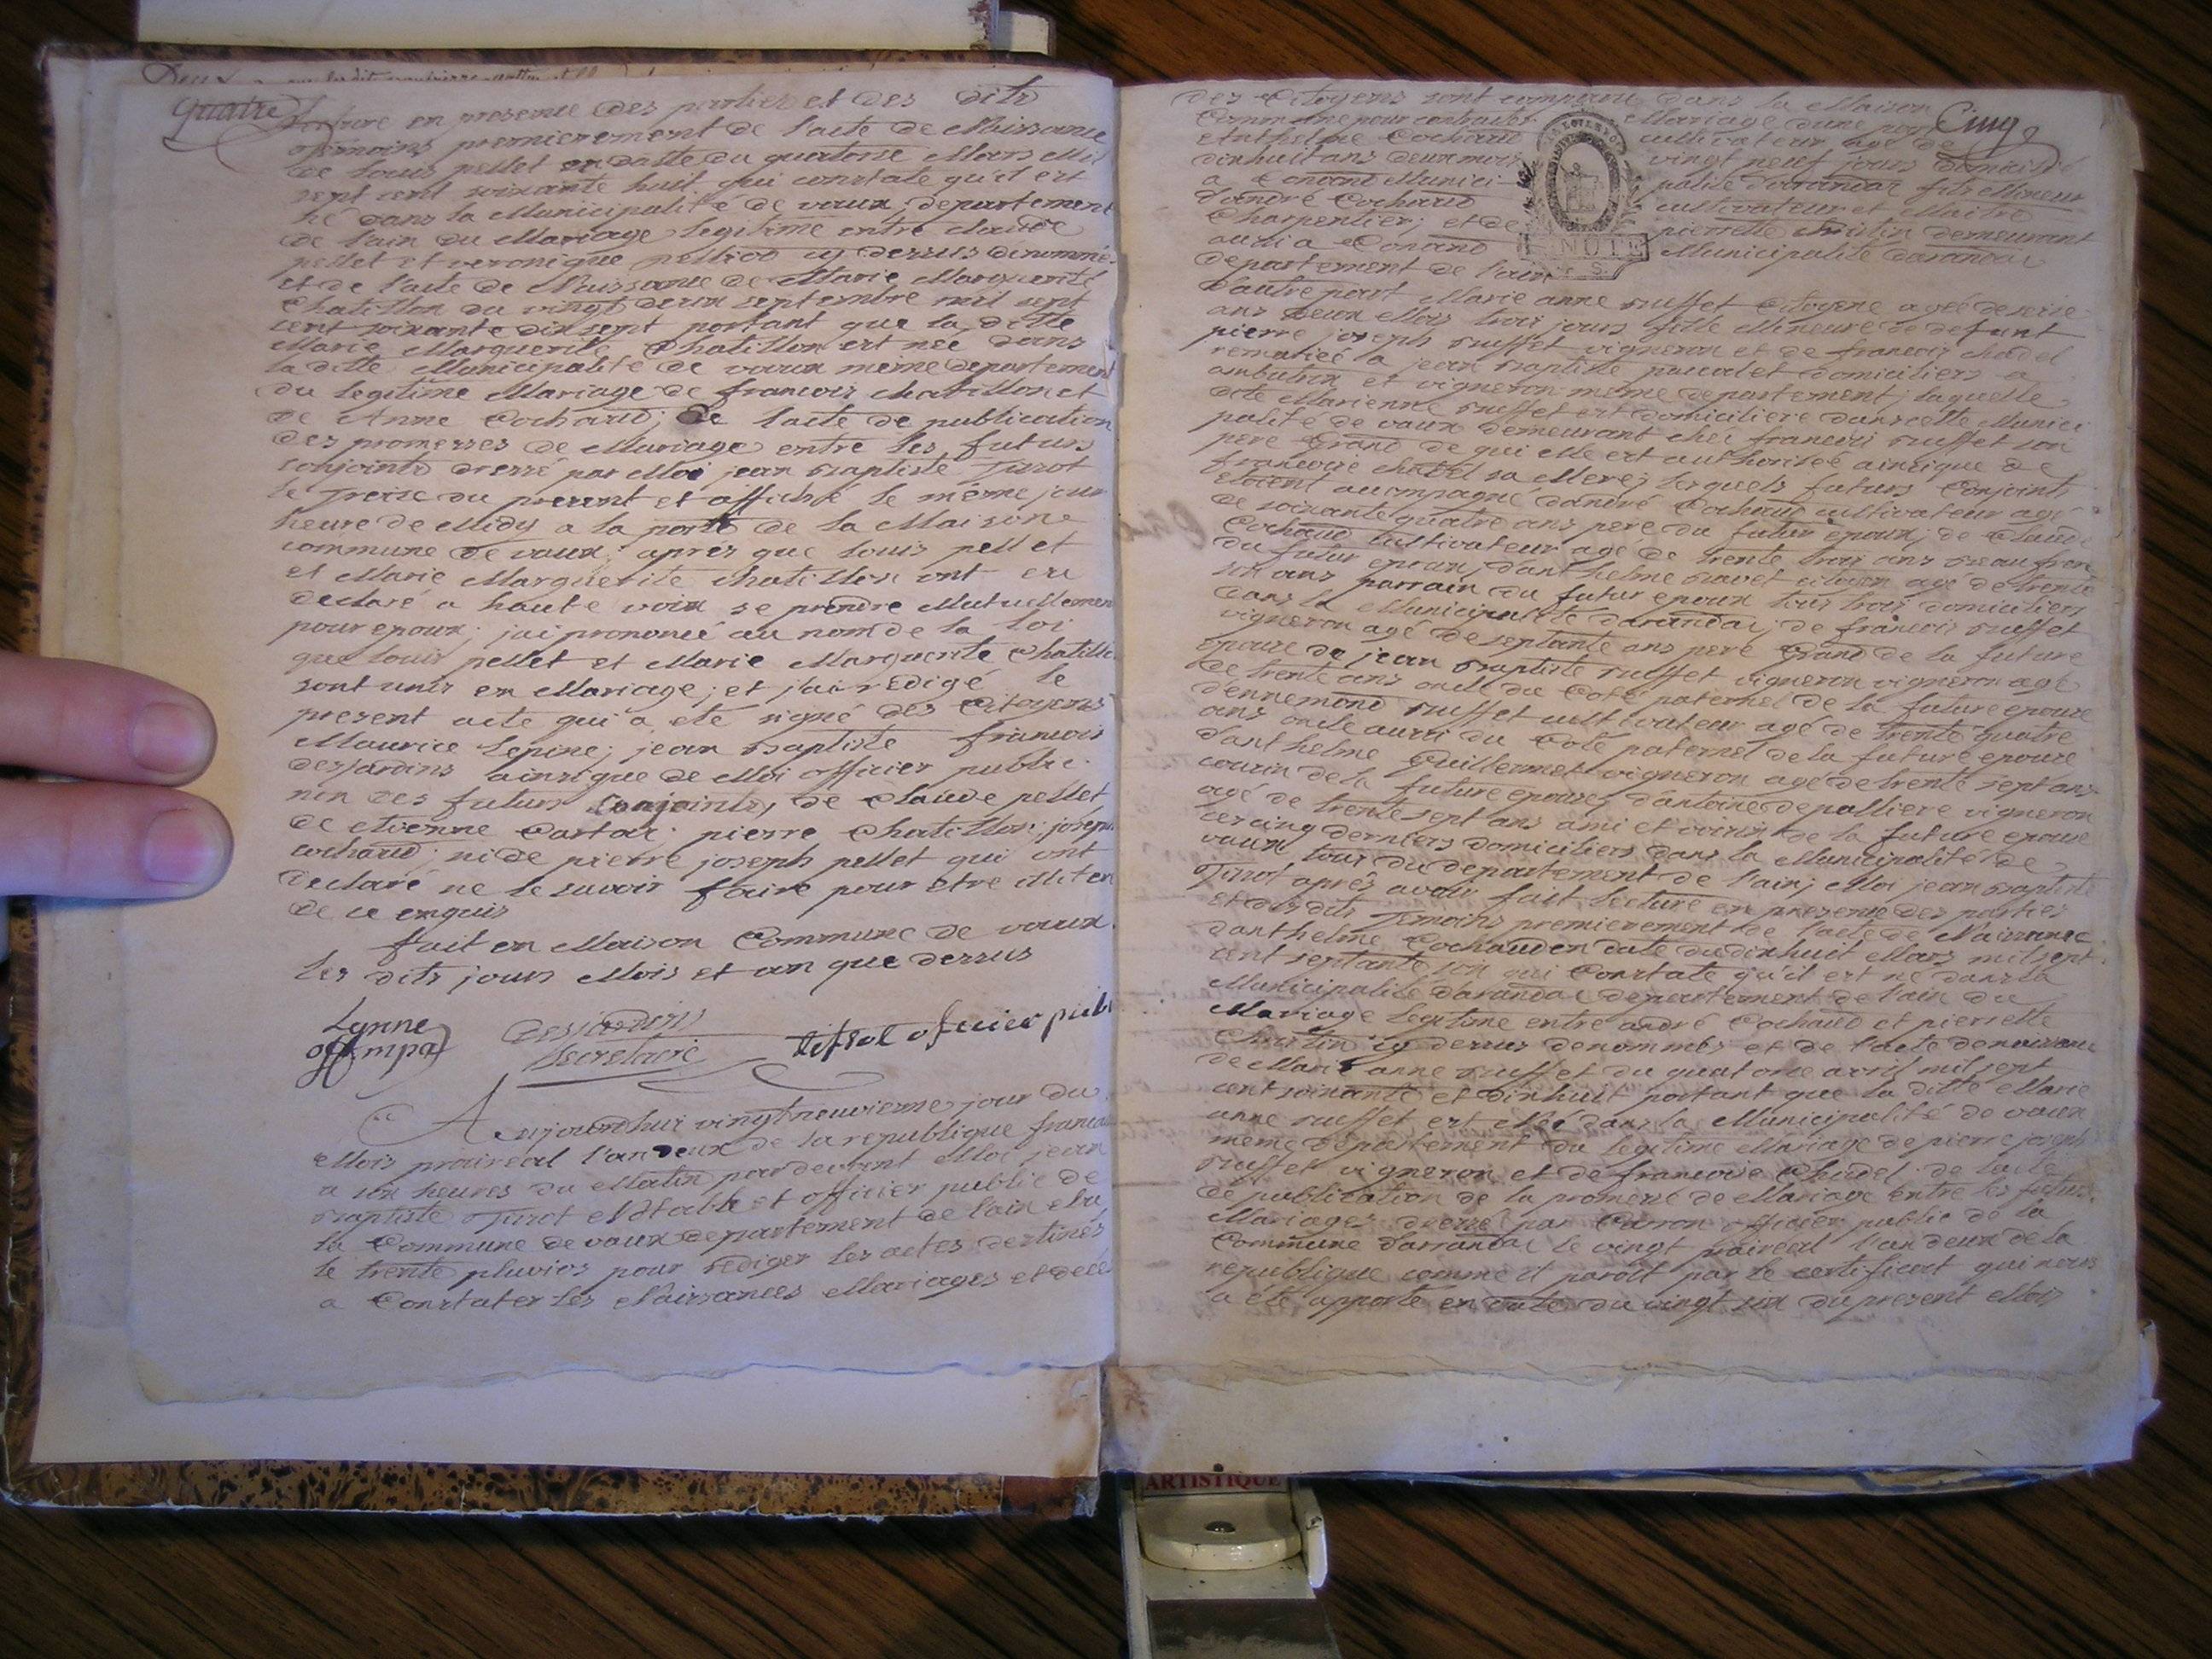 Deux
quatre
Lecture en presence des parties et des dits
temoins premierement de l'acte de Naissance
de louis pellet en datte du quatorse Mars Mil
sept cent soixante huit qui constate qu'il est
né dans la Municipalité de vaux, departement
de l'ain du Mariage legitime entre claude
pellet et veronique pelliod cy dessus dénommé
et de l'acte de Naissance de Marie Marguerite
Chatillon du vingt deux septembre mil sept
cent soixante dixsept portant que la ditte
Marie Marguerite Chatillon est née dans
la ditte Municipalité de vaux même departement
du legitime Mariage de francois chatillon et
de Anne Cochaud; de l'acte de publication
des promesses de Mariage entre les futurs
conjoints dressé par Moi jean Baptiste Tirot
le Treise du present et affiché le même jour
heure de Midy a la porte de la Maison
commune de vaux; apres que louis pellet
et Marie Marguerite chatillon ont eu
declaré a haute voix se prendre Mutuellement
pour epoux; jai prononcé au nom de la loi
que louis pellet et Marie Marguerite Chatillo
sont unis en Mariage; et j'ai redigé le
present acte qui a eté signé des Citoyens
Maurice Lepine; jean Baptiste francois
desjardins ainsi que de Moi officier public
non des futurs Conjoints, de Claude pellet
de etienne Cartar pierre Chatillon; joseph
cochaud; ni de pierre joseph pellet qui ont
declaré ne le savoir faire pour etre illiteré
de ce enquis
fait en Maison Commune de vaux
les dits jours Mois et an que dessus
Desjardins
Secretaire
officier publ
Aujourdhui vingt neuvieme jour du
Mois praireal l'an deux de la republique francai
a six heures du Matin pardevant Moi jean
Baptiste Tirot Notable et officier public de
la Commune de vaux departement de l'ain elu
le trente pluvios pour rediger les actes destinés
a Constater les Naissances Mariages et décé
Cinq
des Citoyens sont comparu dans la Maison
Commune pour contracter Mariage dune part
Anthelme Cochaud cultivateur agé de
dixhuit ans deux mois vingt neuf jours domicilié
a Conand Munici- palité darandas fils Mineur
d'andré Cochaud cultivateur et Maitre
Charpentier; et de pierrette christin demeurant
aussi a Conand Municipalité darandas
departement de l'ain
d'autre part Marie anne ruffet Citoyene agée de seise
ans deux Mois trois jours fille Mineure de defunt
pierre joseph ruffet vigneron et de francoise chadel
remariée a jean Baptiste pascal et domiciliers a
ambutrix et vigneron même departement; laquelle
dite Marienne ruffet est domiciliere dans cette Munici
palité de vaux demeurant chez francois ruffet son
pere Grand de qui elle est authorisée ainsi que de
francoise chadel sa Mere; lesquels futurs Conjoints
etoient accompagné dandré Cochaud cultivateur agé
de soixante quatre ans pere du futur epoux; de Claude
Cochaud cultivateur agé de trente trois ans Beaufrere
du futur epoux, danthelme ravet citoyen agé de trente
six ans parrain du futur epoux tous trois domiciliers
dans la Municipalité darandas; de francois ruffet
vigneron agé de septante ans pere Grand de la future
epouse de jean Baptiste ruffet vigneron vigneron agé
de trente ans oncle du Coté paternel de la future epouse
dennemond ruffet cultivateur agé de trente quatre
ans oncle aussi du Coté paternel de la future epouse
danthelme Guillermet vigneron agé de trente sept ans
cousin de la future epouse, dantoine depalliere vigneron
agé de trente sept ans ami et voisin de la future epouse
ces cinq derniers domiciliers dans la Municipalité de
vaux tous du departement de l'ain; Moi jean Baptiste
Tirot aprés avoir fait lecture en presence des parties
et des dits Temoins premierement de l'acte de Naissance
danthelme Cochaud en date du dixhuit Mars mil sept
cent septante six qui Constate qu'il est né dans la
Municipalité darandas departement de l'ain du
Mariage legitime entre andré Cochaud et pierrette
Christin cy dessus denommés et de l'acte de naissance
de Marie anne ruffet du quatorse avril mil sept
cent soixante et dixhuit portant que la ditte Marie
anne ruffet est Née dans la Municipalité de vaux
même departement du legitime Mariage de pierre joseph
ruffet vigneron et de francoise Chadel de l'acte
de publication de la promesse de Mariage entre les futurs
Mariages dressé par Carron officier public de la
Commune d'arrandas le vingt praireal l'an deux de la
republique comme il paroit par le certificat qui nous
a été apporté en date du vingt six du present Mois
ARTISTIQUE